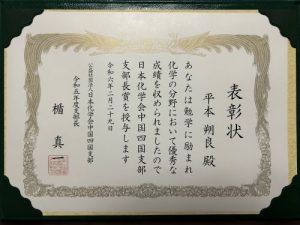 表彰状
平本 朔良 殿
あなたは勉学に励まれ
化学の分野において優秀な
成績を収められましたので
日本化学会中国四国支部
支部長賞を授与します
令和六年二月二十九日
公益社団法人日本化学会中国四国支部
令和五年度支部長
楯 真一